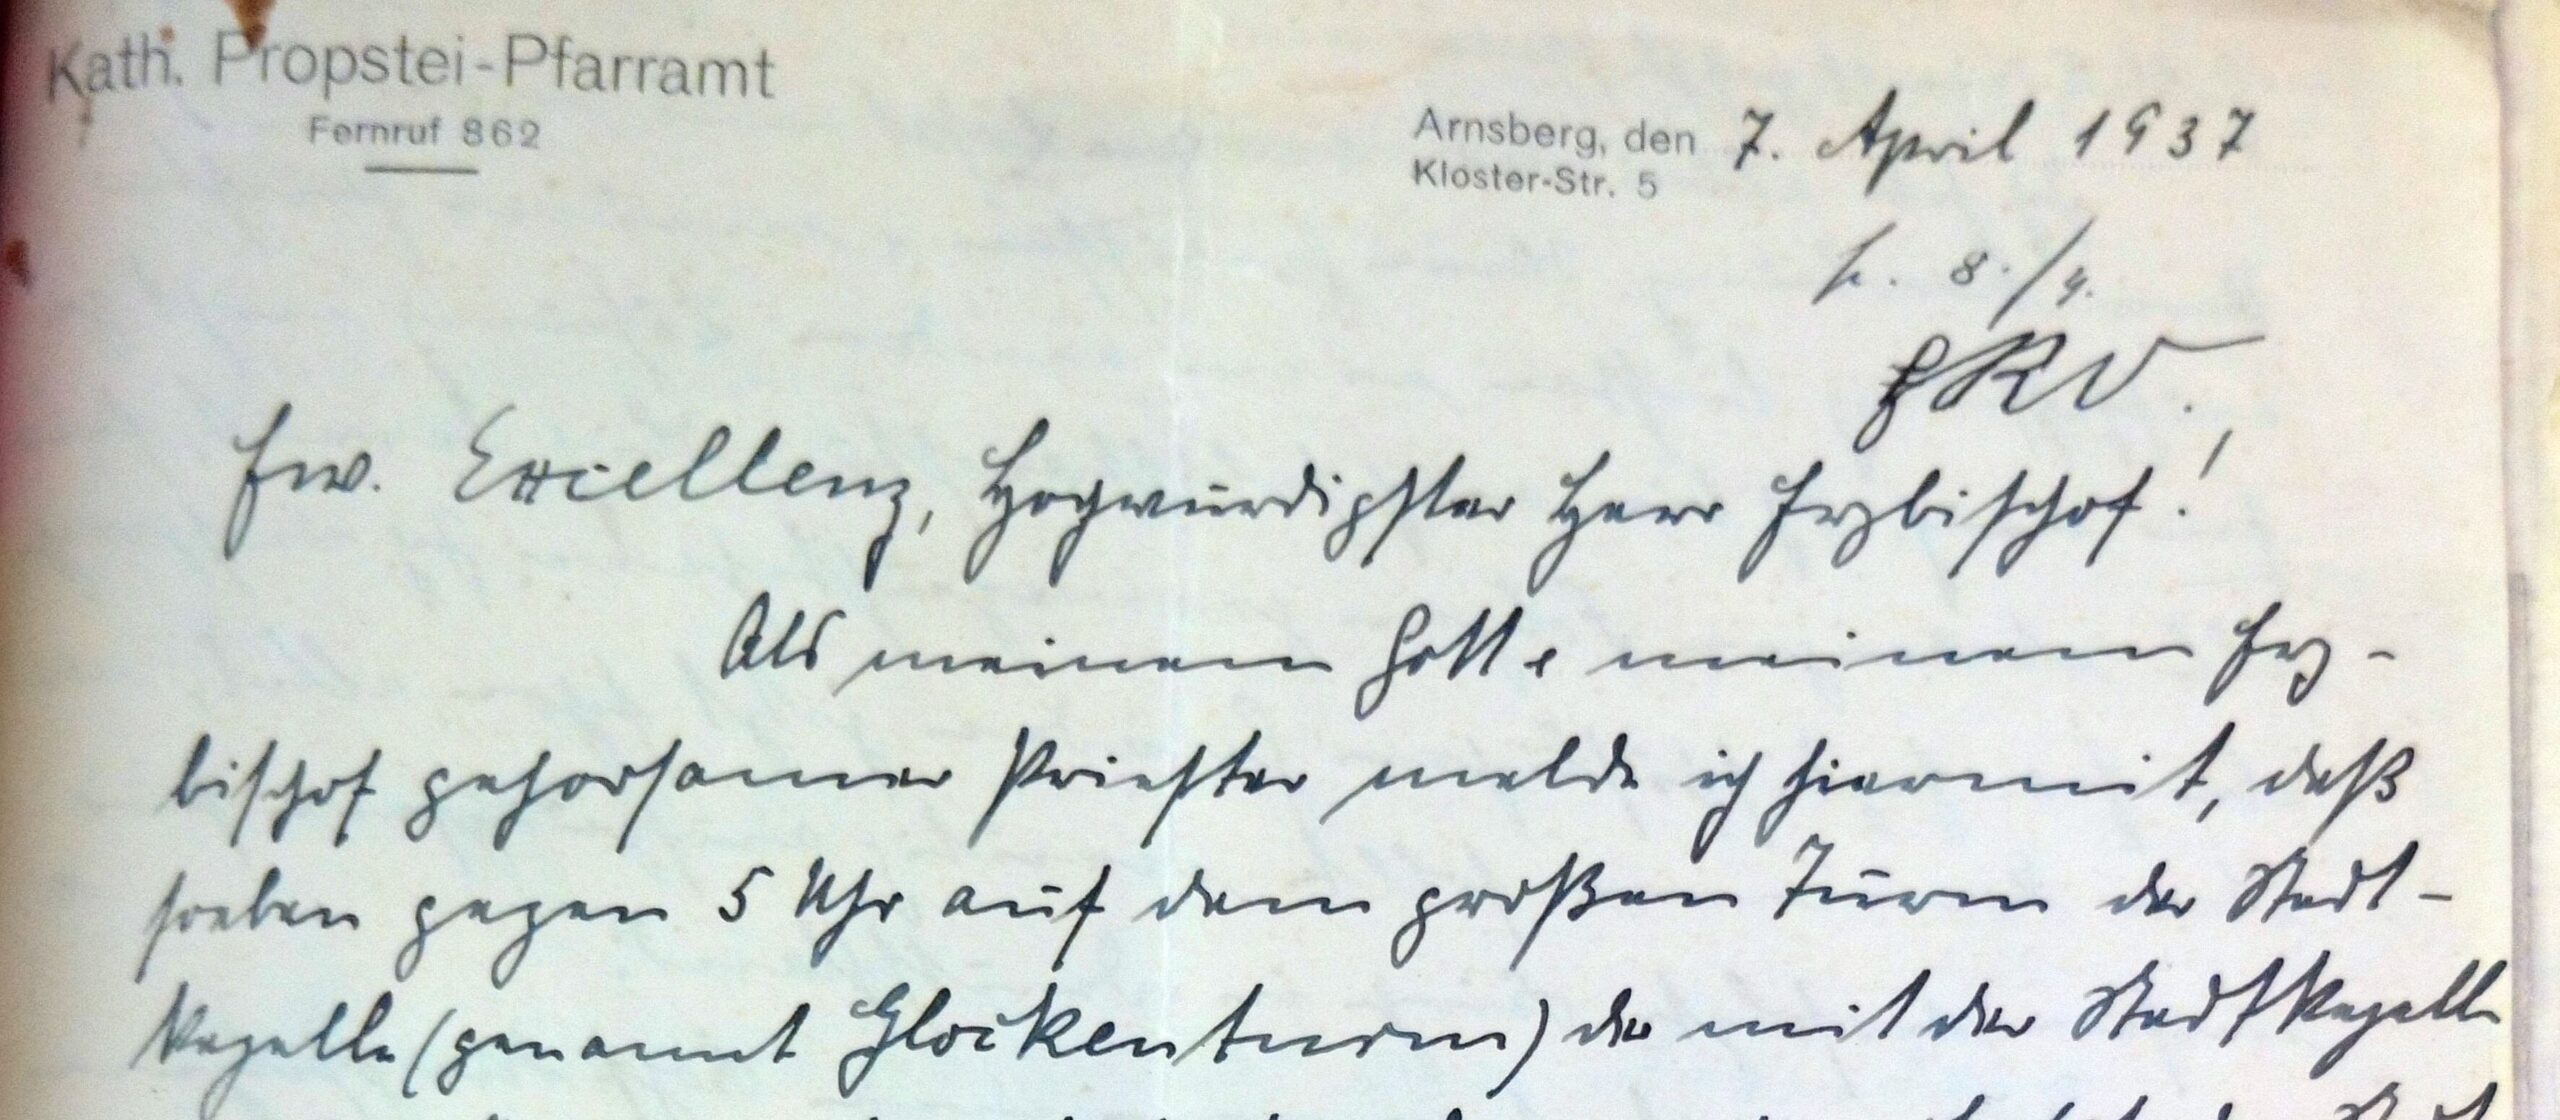 Kath. Propstei-Pfarramt
Fernruf 862
Arnsberg, den 7. April 1937
Kloster-Str. 5
8./4.
Ew. Exciellenz, Hochwürdigster Herr Erzbischof!
Als meinem Gott & meinem Erz-
bischof gehorsamer Priester melde ich hiermit, daß
soeben gegen 5 Uhr auf dem großen Turm der Stadt-
kapelle (genannt Glockenturm) der mit der Stadtkapelle